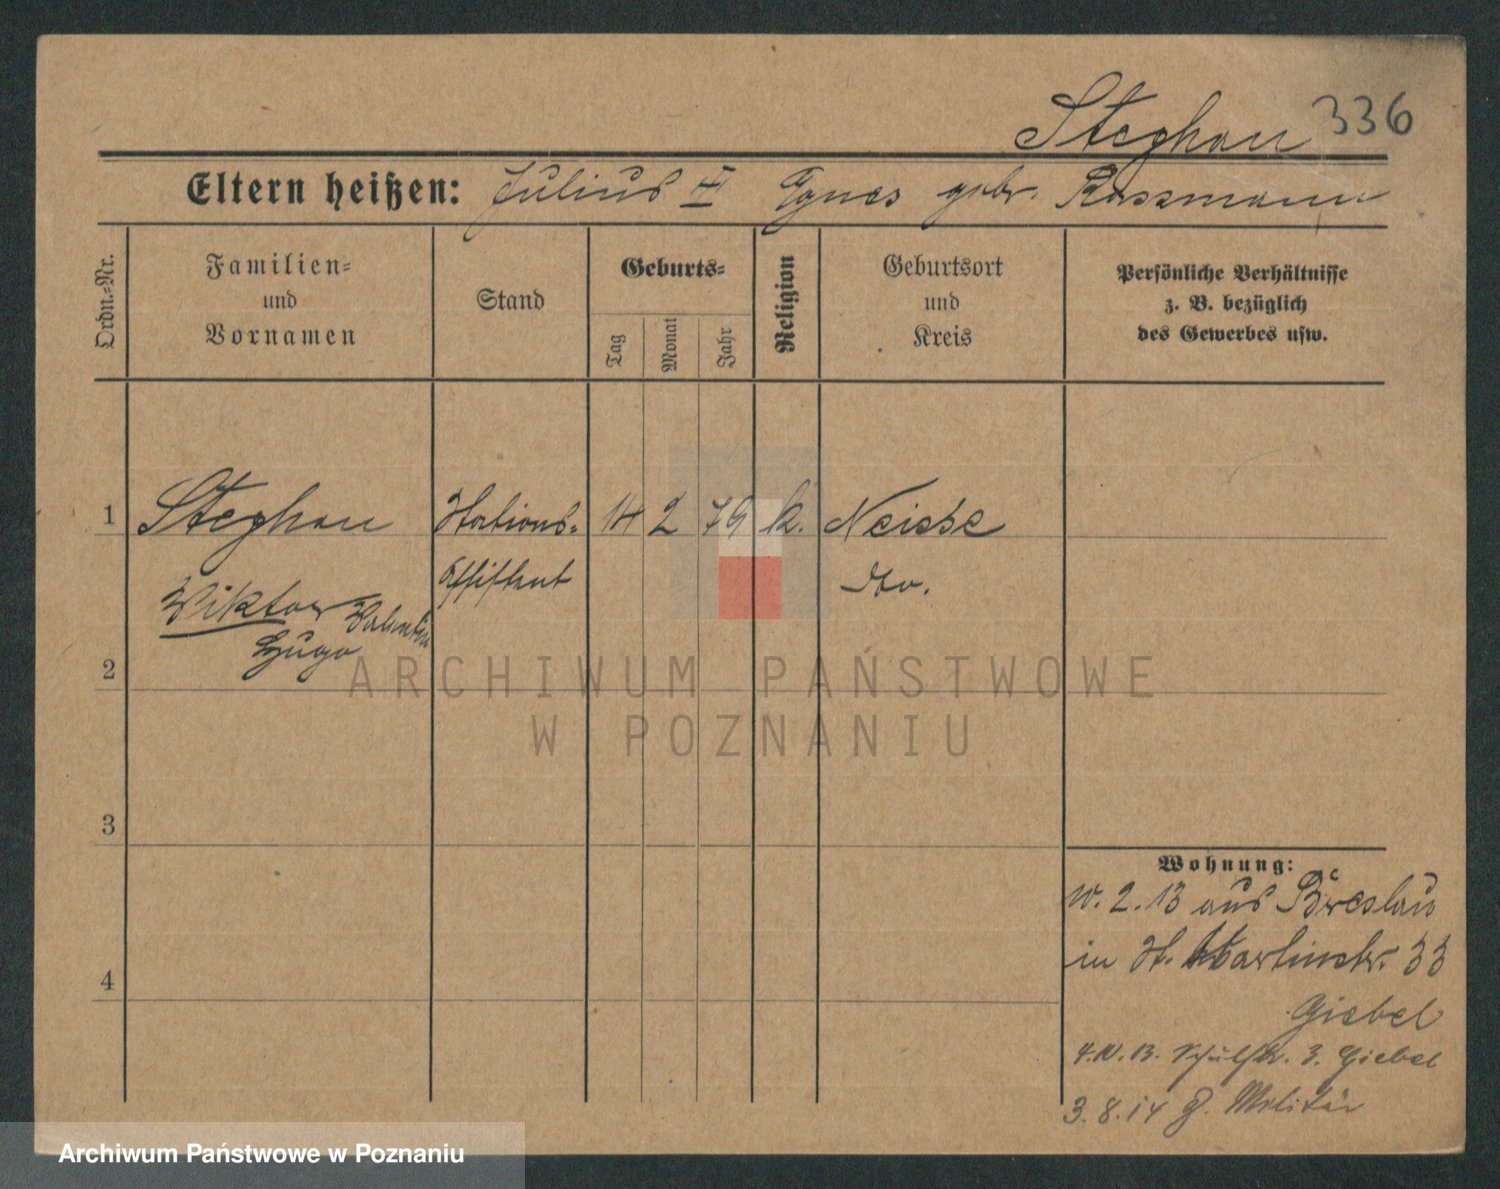 Steghan 336
Eltern heißen: Julius u Agnes gebr. Rossmann
Ordn.-Nr.
Familien-
und
Vornamen
Stand
Geburts-
Tag
Monat
Jahr
Religion
Geburtsort
und
Kreis
Persönliche Verhältnisse
z. B. bezüglich
des Gewerbes usw.
1 Steghan Stations- 14 2 79 k. Neisse
Assistent dto.
Viktor Valentin
Hugo
2
3
4
Wohnung:
10. 2. 13 aus Breslau
in St. Martinstr. 33
Giebel
4. 10. 13. Schulstr. 3. Giebel
3. 8. 14 z. Militär
ARCHIWUM PAŃSTWOWE
W POZNANIU
Archiwum Państwowe w Poznaniu